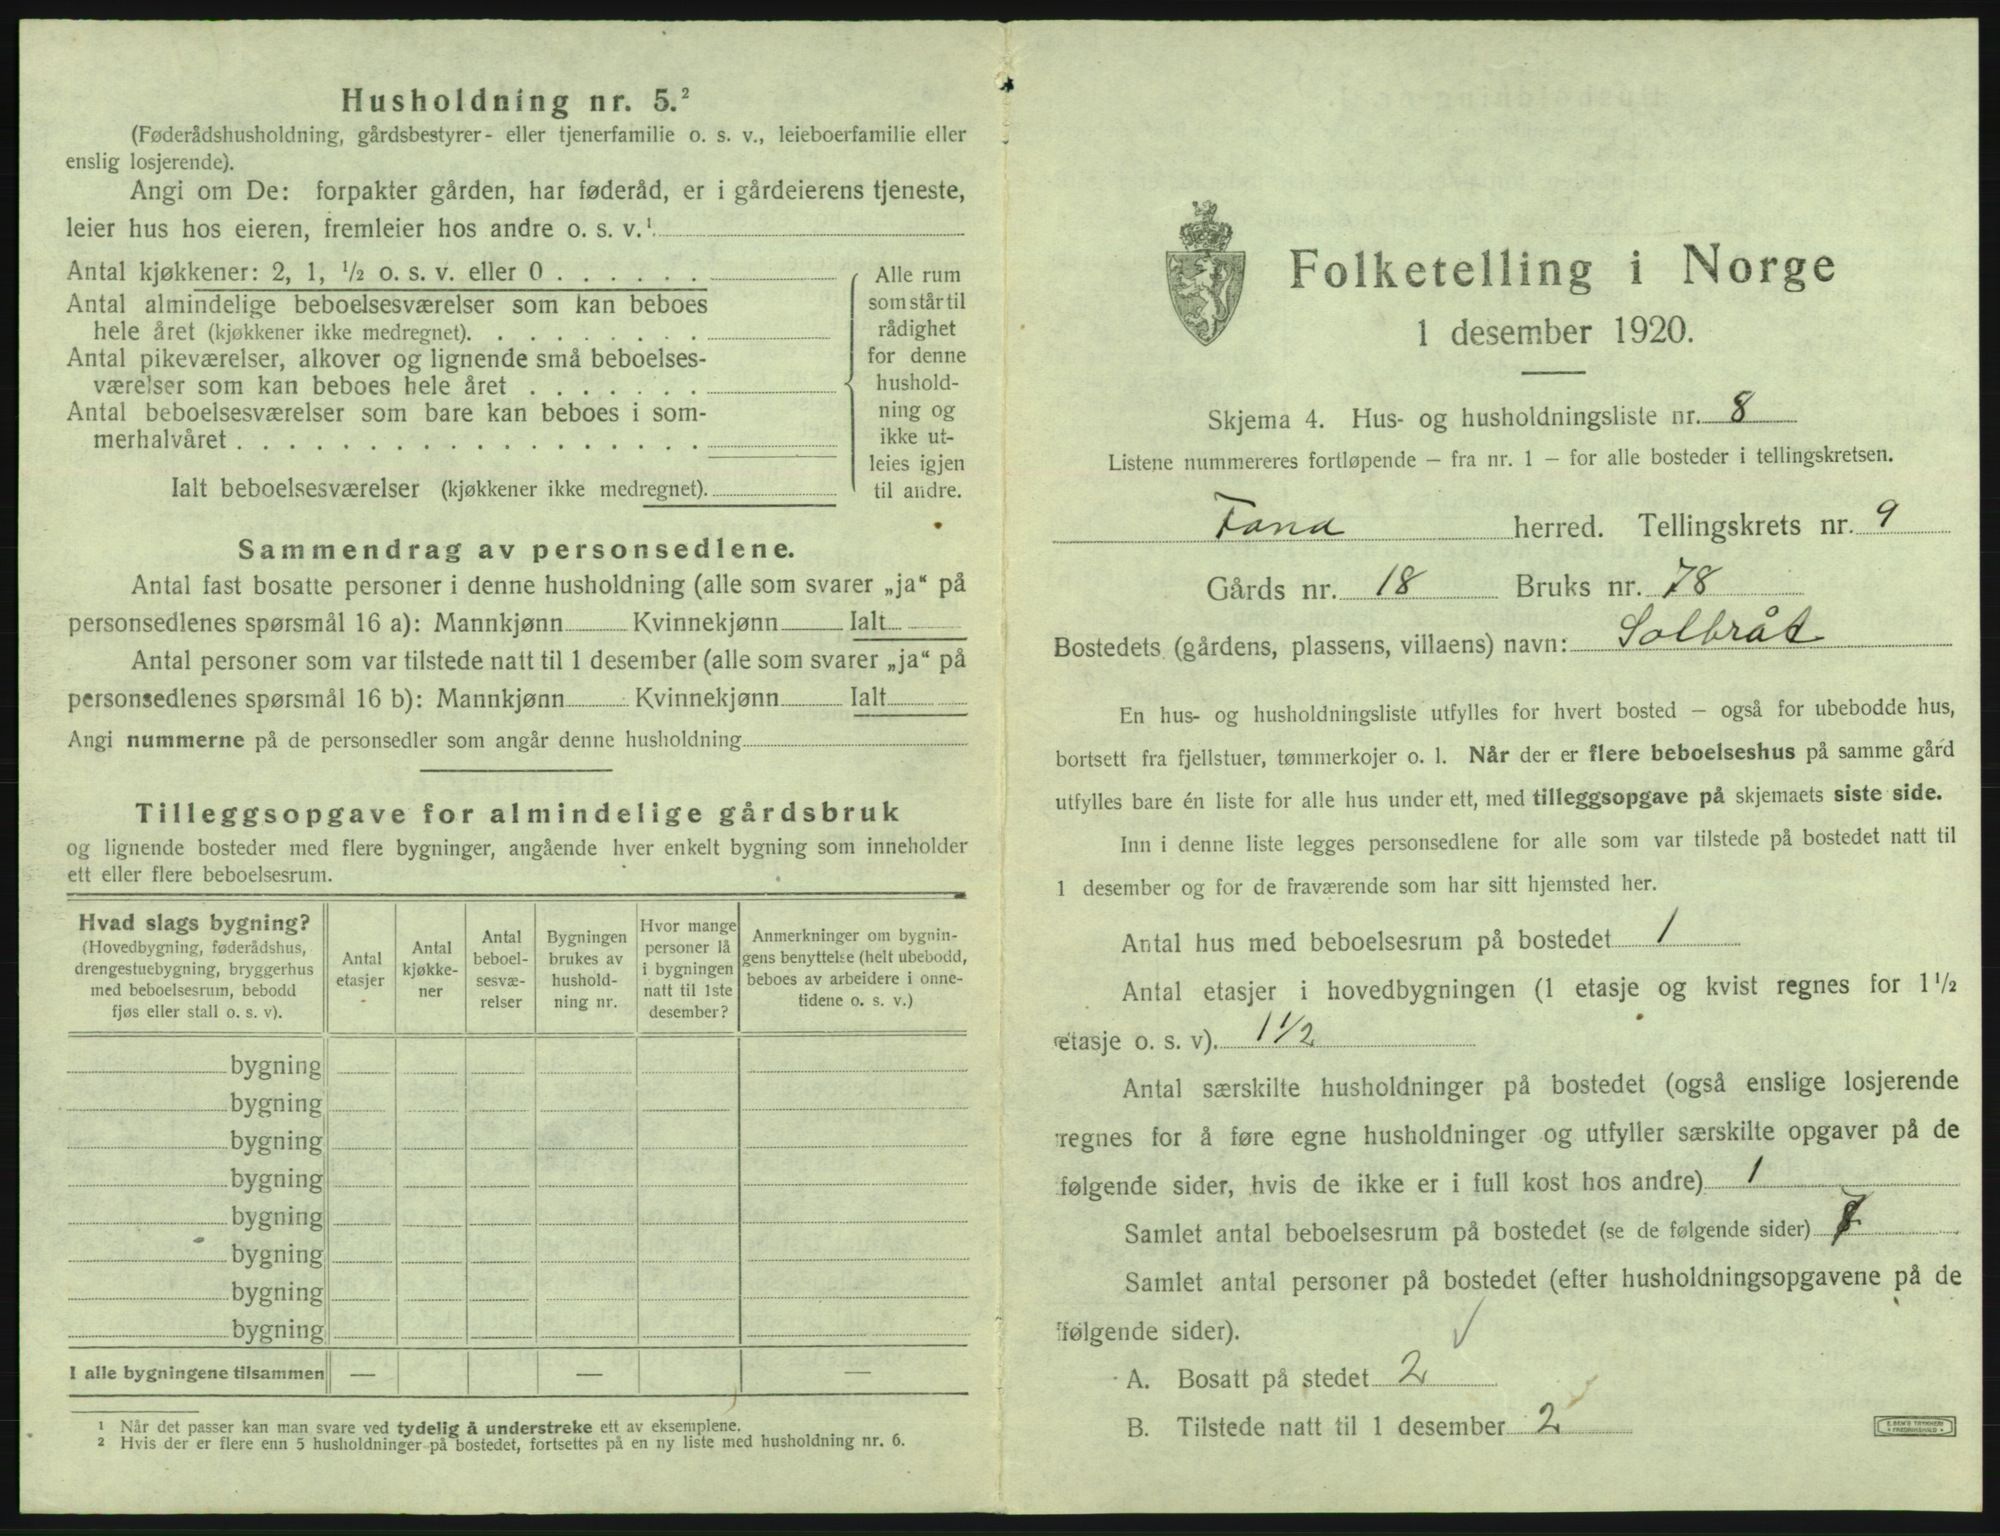 Husholdning nr. 5.²
(Føderådshusholdning, gårdsbestyrer- eller tjenerfamilie o. s. v., leieboerfamilie eller
enslig losjerende).
Angi om De: forpakter gården, har føderåd, er i gårdeierens tjeneste,
leier hus hos eieren, fremleier hos andre o. s. v.¹
Antal kjøkkener: 2, 1, ½ o. s. v. eller 0 . . . . . .
Antal almindelige beboelsesværelser som kan beboes
hele året (kjøkkener ikke medregnet). . . . . . . . .
Antal pikeværelser, alkover og lignende små beboelses-
værelser som kan beboes hele året . . . . . . .
Antal beboelsesværelser som bare kan beboes i som-
merhalvåret . . . . . . . . . . . . . . . . . .
Ialt beboelsesværelser (kjøkkener ikke medregnet).
Alle rum
som står til
rådighet
for denne
hushold-
ning og
ikke ut-
leies igjen
til andre.
Sammendrag av personsedlene.
Antal fast bosatte personer i denne husholdning (alle som svarer „ja“ på
personsedlenes spørsmål 16 a): Mannkjønn Kvinnekjønn Ialt
Antal personer som var tilstede natt til 1 desember (alle som svarer „ja“ på
personsedlenes spørsmål 16 b): Mannkjønn Kvinnekjønn Ialt
Angi nummerne på de personsedler som angår denne husholdning
Tilleggsopgave for almindelige gårdsbruk
og lignende bosteder med flere bygninger, angående hver enkelt bygning som inneholder
ett eller flere beboelsesrum.
Hvad slags bygning?
(Hovedbygning, føderådshus,
drengestuebygning, bryggerhus
med beboelsesrum, bebodd
fjøs eller stall o. s. v).
Antal
etasjer
Antal
kjøkke-
ner
Antal
beboel-
sesvæ-
relser
Bygningen
brukes av
hushold-
ning nr.
Hvor mange
personer lå
i bygningen
natt til 1ste
desember?
Anmerkninger om bygnin-
gens benyttelse (helt ubebodd,
beboes av arbeidere i onne-
tidene o. s. v.)
bygning
bygning
bygning
bygning
bygning
bygning
bygning
bygning
I alle bygningene tilsammen — — —
¹ Når det passer kan man svare ved tydelig å understreke ett av eksemplene.
² Hvis der er flere enn 5 husholdninger på bostedet, fortsettes på en ny liste med husholdning nr. 6.
Folketelling i Norge
1 desember 1920.
Skjema 4. Hus- og husholdningsliste nr. 8
Listene nummereres fortløpende – fra nr. 1 – for alle bosteder i tellingskretsen.
Fana herred. Tellingskrets nr. 9
Gårds nr. 18 Bruks nr. 78
Bostedets (gårdens, plassens, villaens) navn: Solbråt
En hus- og husholdningsliste utfylles for hvert bosted – også for ubebodde hus,
bortsett fra fjellstuer, tømmerkojer o. l. Når der er flere beboelseshus på samme gård
utfylles bare én liste for alle hus under ett, med tilleggsopgave på skjemaets siste side.
Inn i denne liste legges personsedlene for alle som var tilstede på bostedet natt til
1 desember og for de fraværende som har sitt hjemsted her.
Antal hus med beboelsesrum på bostedet 1
Antal etasjer i hovedbygningen (1 etasje og kvist regnes for 1½
etasje o. s. v). 1½
Antal særskilte husholdninger på bostedet (også enslige losjerende
regnes for å føre egne husholdninger og utfyller særskilte opgaver på de
følgende sider, hvis de ikke er i full kost hos andre) 1
Samlet antal beboelsesrum på bostedet (se de følgende sider) 7
Samlet antal personer på bostedet (efter husholdningsopgavene på de
følgende sider).
A. Bosatt på stedet 2
B. Tilstede natt til 1 desember 2
E. SEM'S TRYKKERI
FREDRIKSHALD